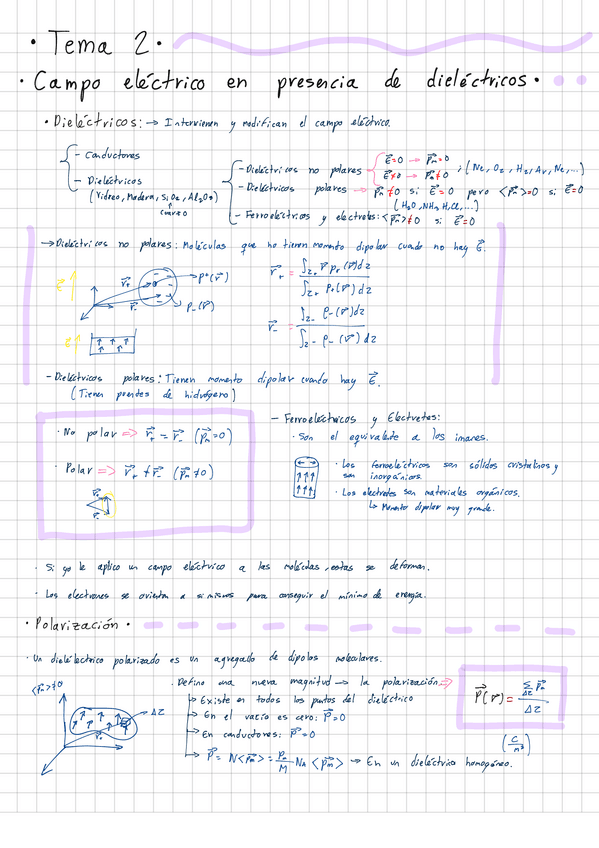 · Tema 2 ·
· Campo eléctrico en presencia de dieléctricos ·
· Dieléctricos: → Intervienen y modifican el campo eléctrico.
- Conductores
- Dieléctricos
(Vidreo, Madera, SiO₂, Al₂O₃)
↑ cuarzo
- Dieléctricos no polares → { E⃗=0 → p⃗ₘ=0
E⃗≠0 → p⃗ₘ≠0 ; (Ne, O₂, H₂, Ar, N₂, ...)
- Dieléctricos polares → p⃗ₘ≠0 si E⃗=0 pero <p⃗ₘ>=0 si E⃗=0
(H₂O, NH₃, HCl, ...)
- Ferroeléctricos y electretes: <p⃗ₘ>≠0 si E⃗=0
→ Dieléctricos no polares: Moléculas que no tienen momento dipolar cuando no hay E⃗.
E⃗ ↑ r⃗₊ r⃗₋ ρ⁺(r⃗) ρ₋(r⃗)
r⃗₊ = ∫τ₊ r⃗ ρ₊(r⃗)dτ / ∫τ₊ ρ₊(r⃗)dτ
r⃗₋ = ∫τ₋ ρ₋(r⃗)dτ / ∫τ₋ ρ₋(r⃗)dτ
- Dieléctricos polares: Tienen momento dipolar cuando hay E⃗.
(Tienen puentes de hidrógeno)
· No polar => r⃗₊ = r⃗₋ (p⃗ₘ=0)
· Polar => r⃗₊ ≠ r⃗₋ (p⃗ₘ≠0)
r⃗₊
r⃗₋
- Ferroeléctricos y Electretes:
· Son el equivalente a los imanes.
· Los ferroeléctricos son sólidos cristalinos y
son inorgánicos.
· Los electretes son materiales orgánicos.
↳ Momento dipolar muy grande.
· Si yo le aplico un campo eléctrico a las moléculas, estas se deforman.
· Los electrones se orientan a si mismos para conseguir el mínimo de energía.
· Polarización ·
· Un dieléctrico polarizado es un agregado de dipolos moleculares.
<p⃗ₘ>≠0
Δτ
· Defino una nueva magnitud → la polarización =>
→ Existe en todos los puntos del dieléctrico
→ En el vacío es cero: P⃗=0
→ En conductores: P⃗=0
→ P⃗ = N<p⃗ₘ> = ρₘ/M Nₐ <p⃗ₘ> → En un dieléctrico homogéneo.
P⃗(r⃗) = Σ_Δτ p⃗ₘ / Δτ
(C/m²)